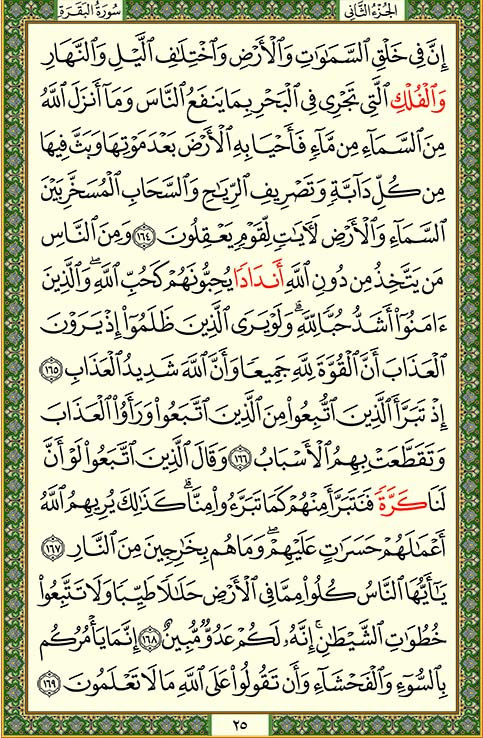 الجزء الثاني
سورة البقرة
إِنَّ فِي خَلْقِ السَّمَٰوَٰتِ وَالْأَرْضِ وَاخْتِلَٰفِ الَّيْلِ وَالنَّهَارِ
وَالْفُلْكِ الَّتِي تَجْرِي فِي الْبَحْرِ بِمَا يَنفَعُ النَّاسَ وَمَآ أَنزَلَ اللَّهُ
مِنَ السَّمَآءِ مِن مَّآءٍ فَأَحْيَا بِهِ الْأَرْضَ بَعْدَ مَوْتِهَا وَبَثَّ فِيهَا
مِن كُلِّ دَآبَّةٍ وَتَصْرِيفِ الرِّيَٰحِ وَالسَّحَابِ الْمُسَخَّرِ بَيْنَ
السَّمَآءِ وَالْأَرْضِ لَءَايَٰتٍ لِّقَوْمٍ يَعْقِلُونَ ١٦٤ وَمِنَ النَّاسِ
مَن يَتَّخِذُ مِن دُونِ اللَّهِ أَندَادًا يُحِبُّونَهُمْ كَحُبِّ اللَّهِ ۖ وَالَّذِينَ
ءَامَنُوٓا۟ أَشَدُّ حُبًّا لِّلَّهِ ۗ وَلَوْ يَرَى الَّذِينَ ظَلَمُوٓا۟ إِذْ يَرَوْنَ
الْعَذَابَ أَنَّ الْقُوَّةَ لِلَّهِ جَمِيعًا وَأَنَّ اللَّهَ شَدِيدُ الْعَذَابِ ١٦٥
إِذْ تَبَرَّأَ الَّذِينَ اتُّبِعُوا۟ مِنَ الَّذِينَ اتَّبَعُوا۟ وَرَأَوُا۟ الْعَذَابَ
وَتَقَطَّعَتْ بِهِمُ الْأَسْبَابُ ١٦٦ وَقَالَ الَّذِينَ اتَّبَعُوا۟ لَوْ أَنَّ
لَنَا كَرَّةً فَنَتَبَرَّأَ مِنْهُمْ كَمَا تَبَرَّءُوا۟ مِنَّا ۗ كَذَٰلِكَ يُرِيهِمُ اللَّهُ
أَعْمَٰلَهُمْ حَسَرَٰتٍ عَلَيْهِمْ ۖ وَمَا هُم بِخَٰرِجِينَ مِنَ النَّارِ ١٦٧
يَٰٓأَيُّهَا النَّاسُ كُلُوا۟ مِمَّا فِي الْأَرْضِ حَلَٰلًا طَيِّبًا وَلَا تَتَّبِعُوا۟
خُطُوَٰتِ الشَّيْطَٰنِ ۚ إِنَّهُۥ لَكُمْ عَدُوٌّ مُّبِينٌ ١٦٨ إِنَّمَا يَأْمُرُكُم
بِالسُّوٓءِ وَالْفَحْشَآءِ وَأَن تَقُولُوا۟ عَلَى اللَّهِ مَا لَا تَعْلَمُونَ ١٦٩
٢٥